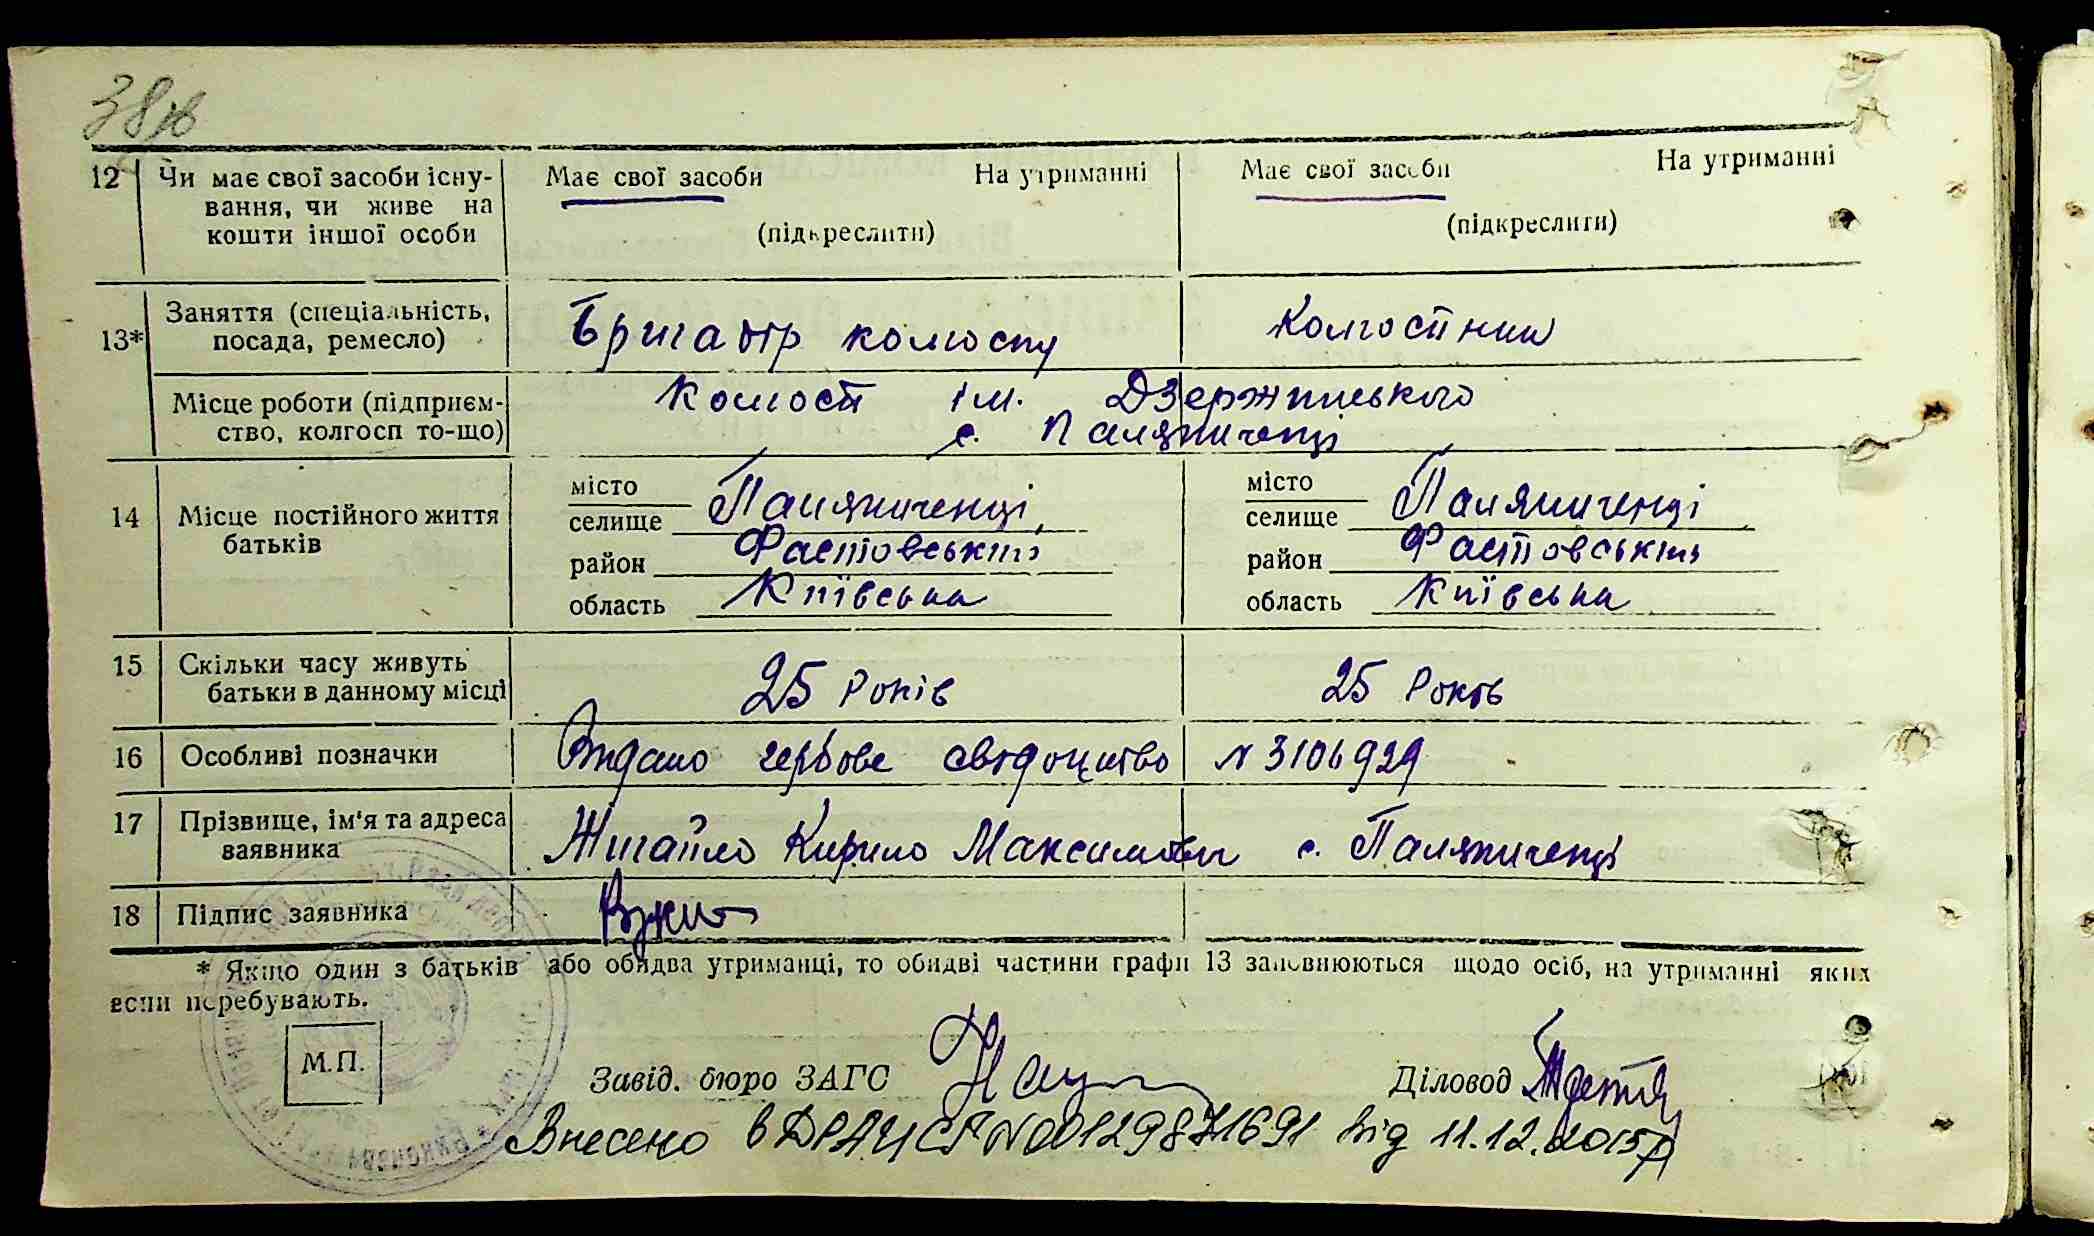 38 зв
12 Чи має свої засоби існу- Має свої засоби На утриманні Має свої засоби На утриманні
вання, чи живе на
кошти іншої особи (підкреслити) (підкреслити)
13* Заняття (спеціальність, Бригадір колгоспу Колгоспниц
посада, ремесло)
Місце роботи (підприєм- Колгосп ім. Дзержинського
ство, колгосп то-що) с. Паляниченці
14 Місце постійного життя місто Паляниченці місто Паляниченці
батьків селище селище
район Фастовський район Фастовський
область Київська область Київська
15 Скільки часу живуть 25 років 25 років
батьки в данному місці
16 Особливі позначки Видано гербове свідоцтво N 3106929
17 Прізвище, ім'я та адреса Жигайло Кирило Максимович с. Паляниченці
заявника
18 Підпис заявника
* Якщо один з батьків або обидва утриманці, то обидві частини графи 13 заповнюються щодо осіб, на утриманні яких
вони перебувають.
М.П.
Завід. бюро ЗАГС Діловод
Внесено в ДРАЦСГ N00129871691 від 11.12.2015р